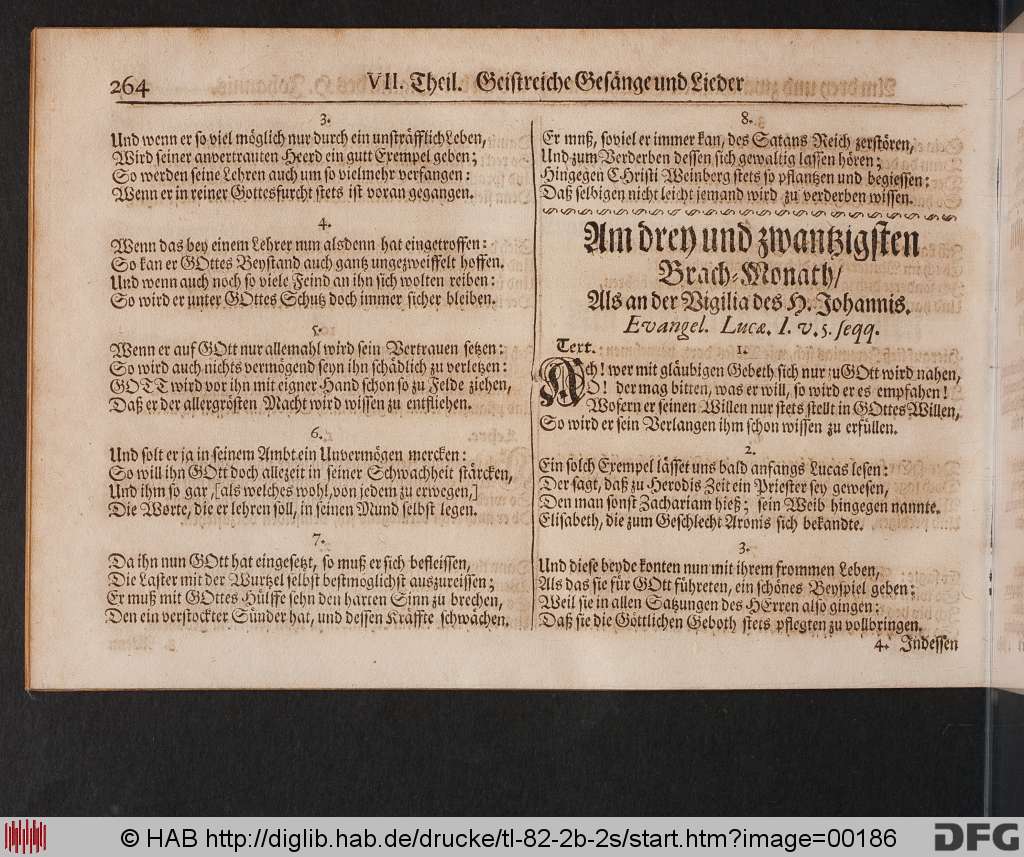 264
VII. Theil. Geistreiche Gesänge und Lieder
3.
Und wenn er so viel möglich nur durch ein unsträfflich Leben,
Wird seiner anvertrauten Heerd ein gutt Exempel geben;
So werden seine Lehren auch um so vielmehr verfangen:
Wenn er in reiner Gottesfurcht stets ist voran gegangen.
4.
Wenn das bey einem Lehrer nun alsdenn hat eingetroffen:
So kan er GOttes Beystand auch gantz ungezweiffelt hoffen.
Und wenn auch noch so viele Feind an ihn sich wolten reiben:
So wird er unter GOttes Schutz doch immer sicher bleiben.
5.
Wenn er auf GOtt nur allemahl wird sein Vertrauen setzen:
So wird auch nichts vermögend seyn ihn schädlich zu verletzen:
GOTT wird vor ihn mit eigner Hand schon so zu Felde ziehen,
Daß er der allergrösten Macht wird wissen zu entfliehen.
6.
Und solt er ja in seinem Ambt ein Unvermögen mercken:
So will ihn GOtt doch allezeit in seiner Schwachheit stärcken,
Und ihm so gar, [als welches wohl, von jedem zu erwegen,]
Die Worte, die er lehren soll, in seinen Mund selbst legen.
7.
Da ihn nun GOtt hat eingesetzt, so muß er sich befleissen,
Die Laster mit der Wurtzel selbst bestmöglichst auszureissen;
Er muß mit GOttes Hülffe sehn den harten Sinn zu brechen,
Den ein verstockter Sünder hat, und dessen Kräffte schwächen.
8.
Er mnß, soviel er immer kan, des Satans Reich zerstören,
Und zum Verderben dessen sich gewaltig lassen hören;
Hingegen CHristi Weinberg stets so pflantzen und begiessen:
Daß selbigen nicht leicht jemand wird zu verderben wissen.
Am drey und zwantzigsten
Brach-Monath/
Als an der Vigilia des H. Johannis.
Evangel. Lucæ. I. v. 5. seqq.
Text.
1.
Ach! wer mit gläubigen Gebeth sich nur zu GOtt wird nahen,
O! der mag bitten, was er will, so wird er es empfahen!
Wofern er seinen Willen nur stets stellt in GOttes Willen,
So wird er sein Verlangen ihm schon wissen zu erfüllen.
2.
Ein solch Exempel lässet uns bald anfangs Lucas lesen:
Der sagt, daß zu Herodis Zeit ein Priester sey gewesen,
Den man sonst Zachariam hieß; sein Weib hingegen nannte.
Elisabeth, die zum Geschlecht Aronis sich bekandte.
3.
Und diese beyde konten nun mit ihrem frommen Leben,
Als das sie für GOtt führeten, ein schönes Beyspiel geben;
Weil sie in allen Satzungen des HErren also gingen:
Daß sie die Göttlichen Geboth stets pflegten zu vollbringen.
4. Indessen
© HAB http://diglib.hab.de/drucke/tl-82-2b-2s/start.htm?image=00186
DFG